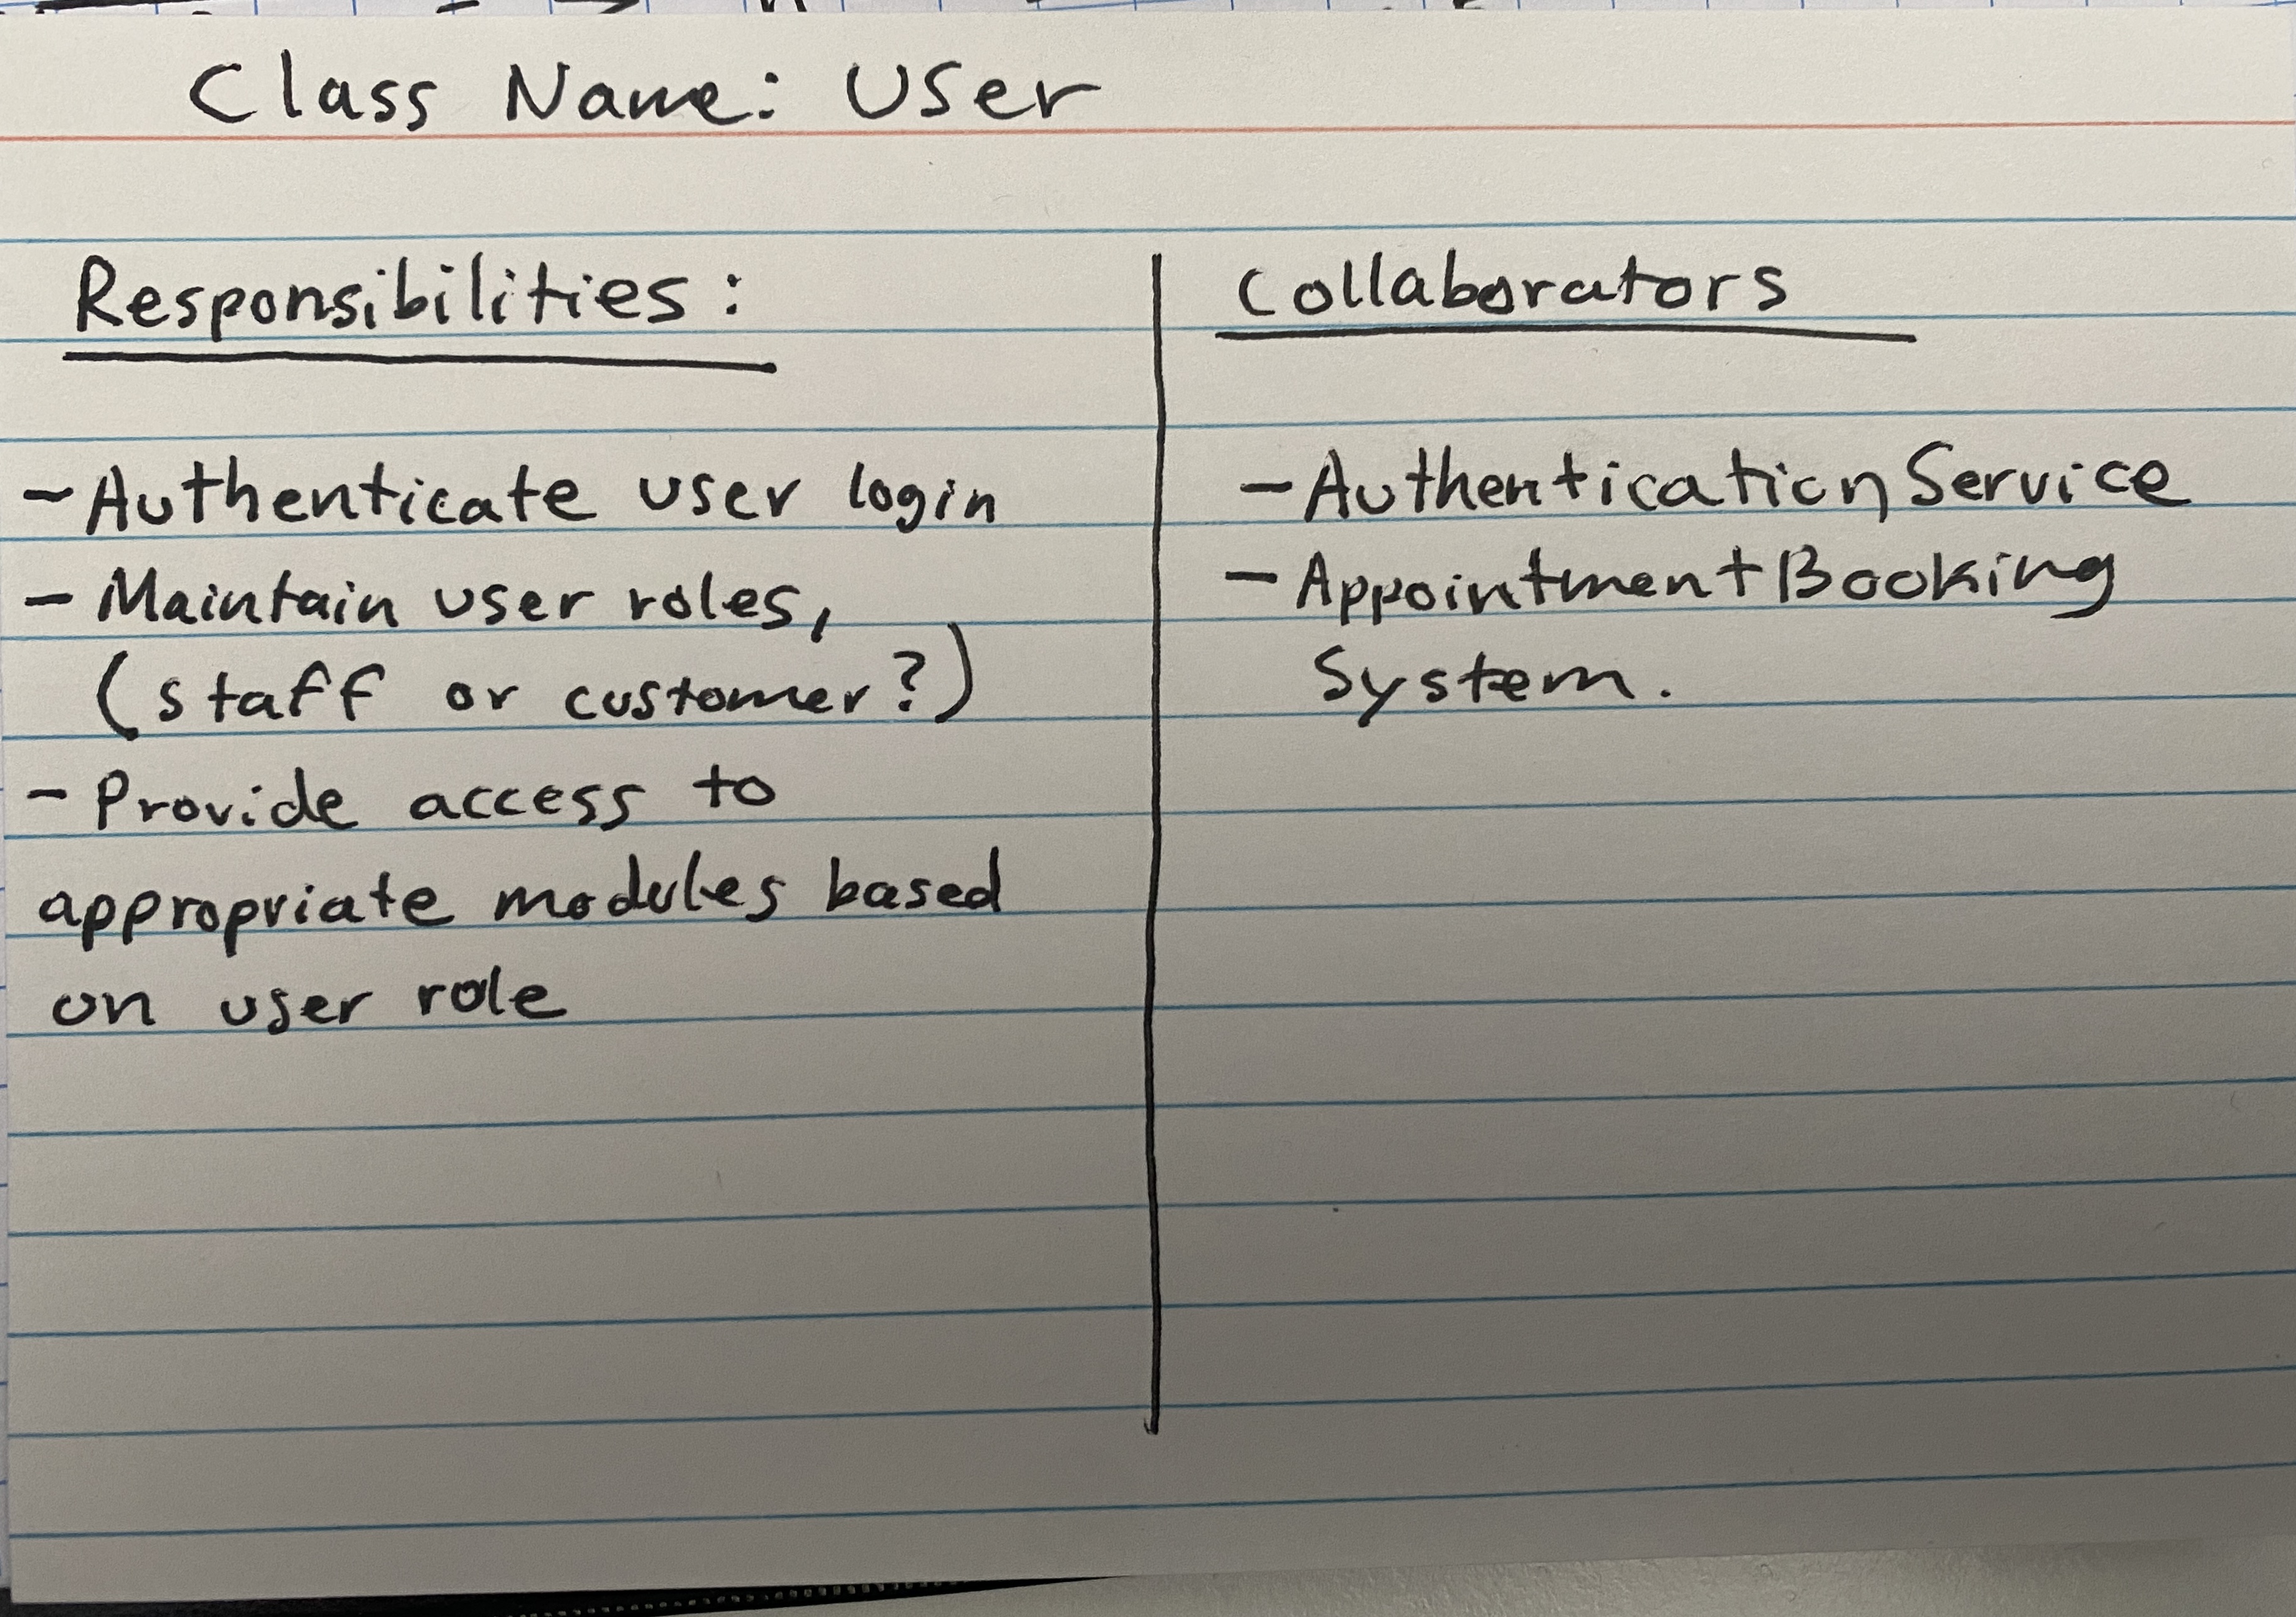 Class Name: User
Responsibilities:
- Authenticate user login
- Maintain user roles,
(staff or customer?)
- Provide access to
appropriate modules based
on user role
Collaborators
- AuthenticationService
- AppointmentBooking
System.